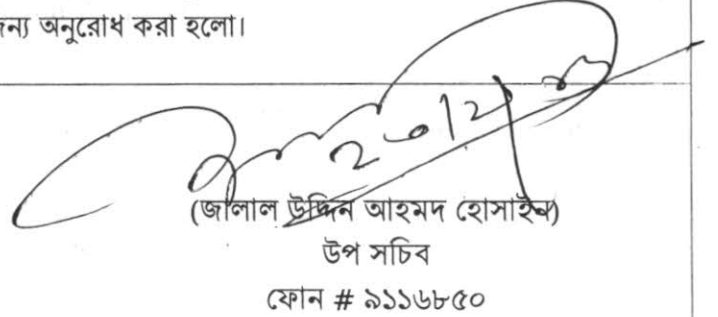 জন্য অনুরোধ করা হলো।
(জালাল উদ্দিন আহমদ হোসাইন)
উপ সচিব
ফোন # ৯১১৬৮৫০